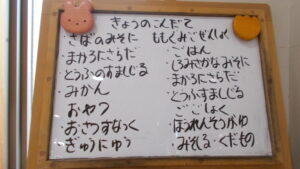 きょうのこんだて
・さばのみそに
・まかろにさらだ
・とうふのすましじる
・みかん
おやつ
・おさつすなっく
・ぎゅうにゅう
ももぐみごぜんしょく
・ごはん
・しろみざかなみそに
・まかろにさらだ
・とうふすましじる
ごごしょく
・ほうれんそうがゆ
・みそしる・くだもの